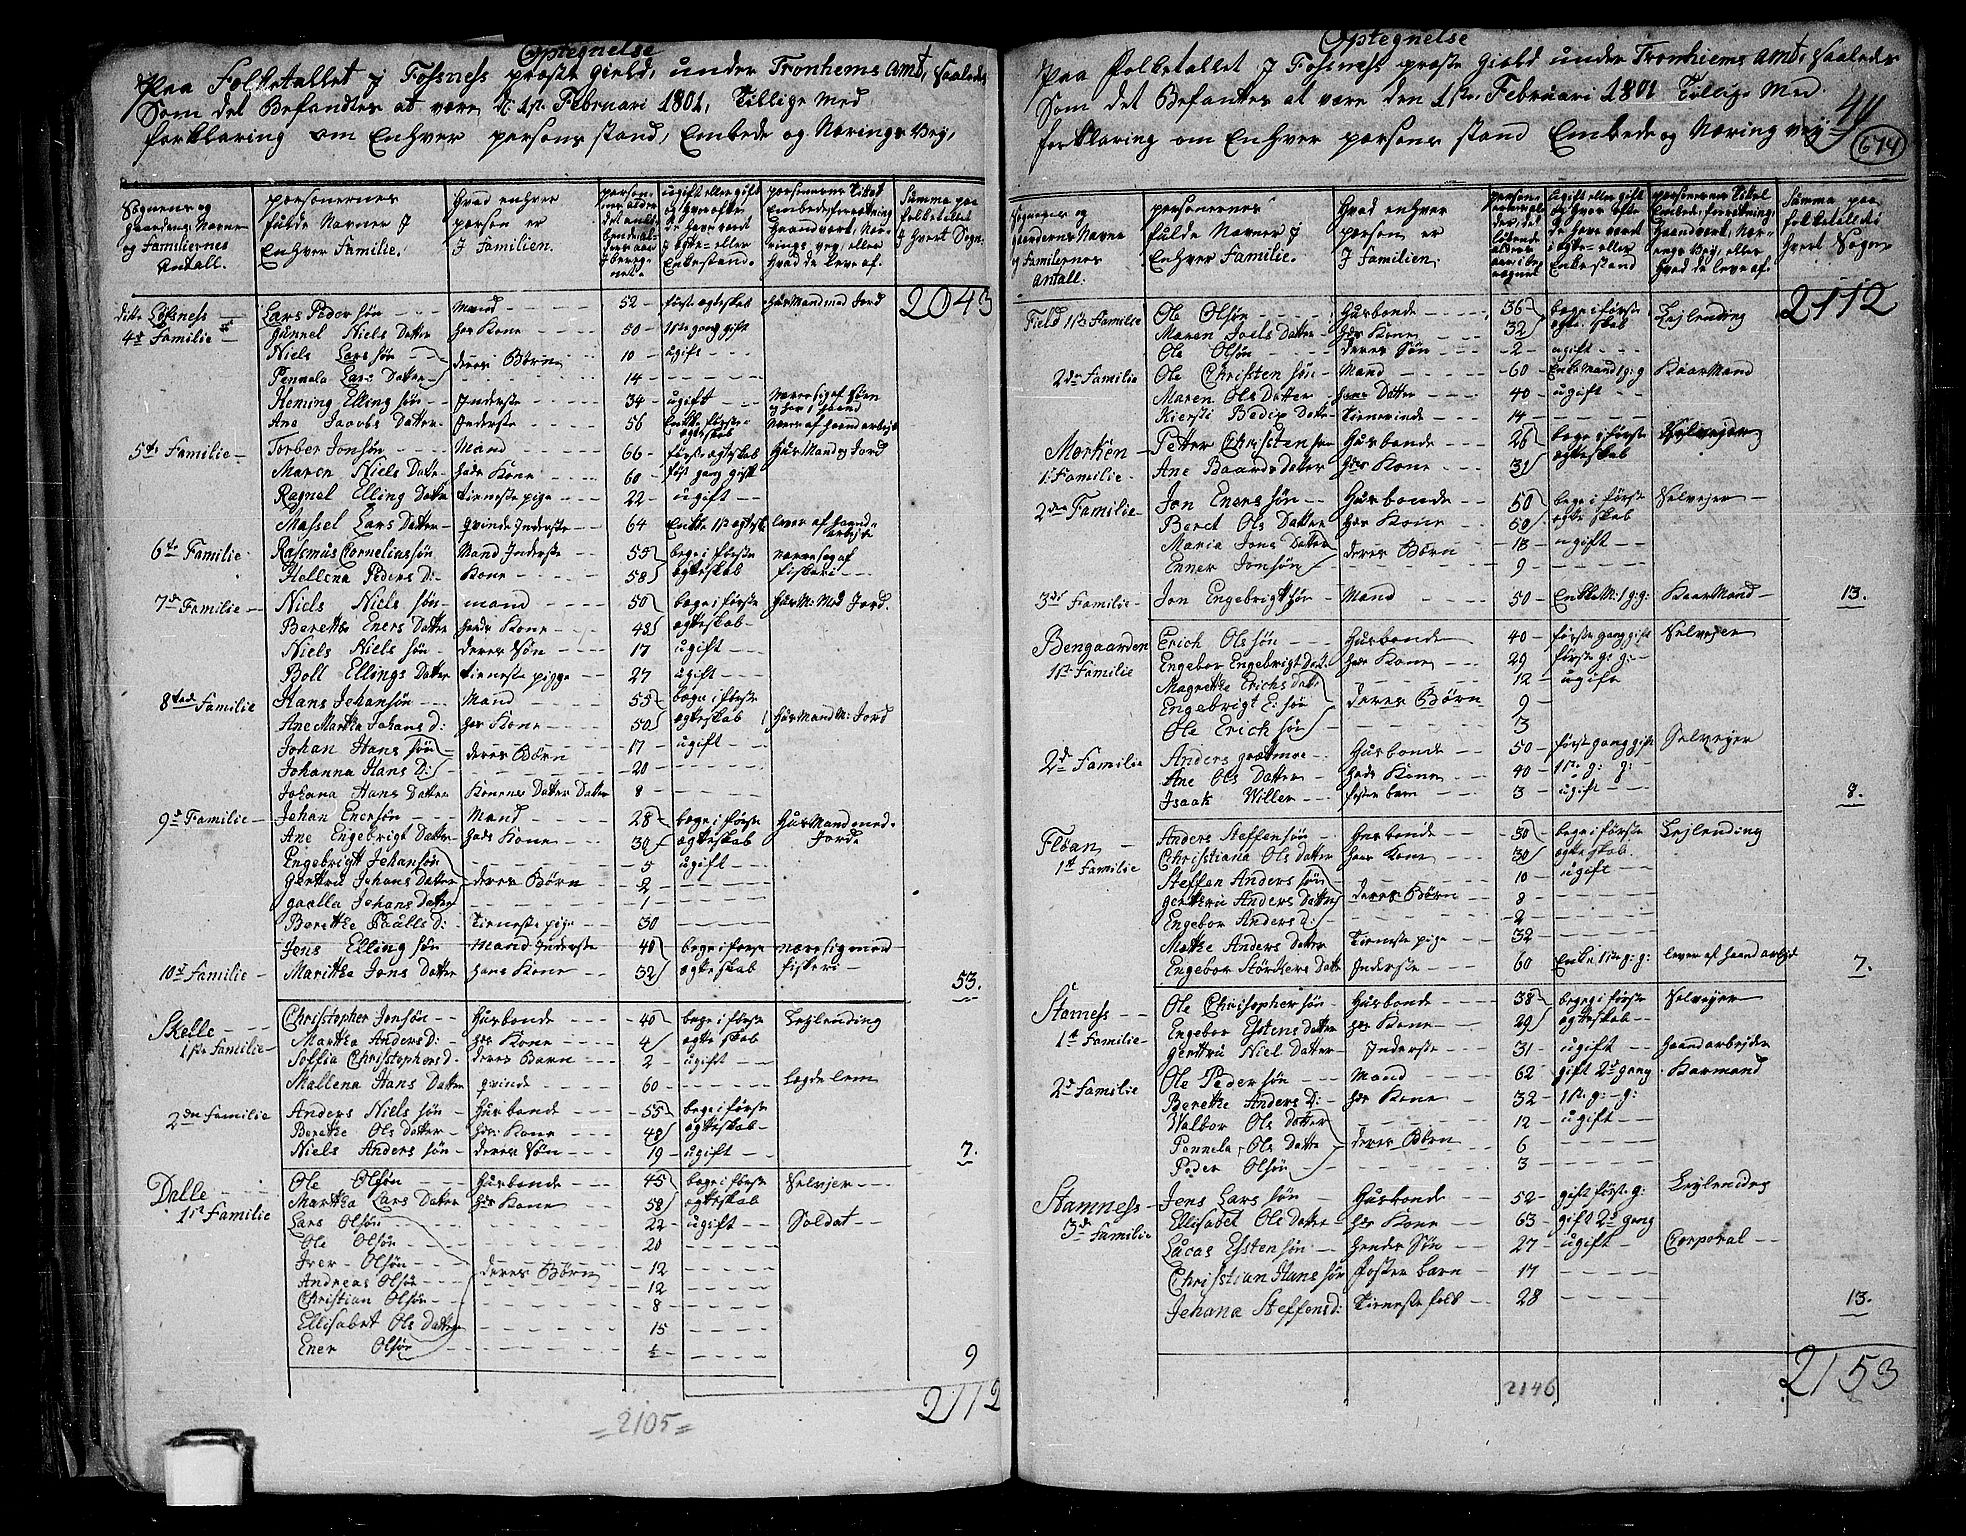 Optegnelse
Paa Folketallet j Fossness præste gield, under Tronhems Amt, saaledes
Som det Befandtes at være d: 1ste Februari 1801, Tillige med
forklaring om Enhver persons stand, Embede og Nærings Vej,
Sognens og gaardens Navne og Familiernes Antall.
personernes fulde Navner J Enhver Familie.
Hvad enhver person er J Familien.
ugift eller gift
Summa paa folketallet J hvert Sogn
ditte Løfsness 4de Familie Lars Peder søn Mand 52 første ægteskab huusMand med Jord 2043
Gunnel Niels Datter hs Kone 50 1ste gang gift
Niels Lars søn deres Børn 10 ugift
Pennela Lars Datter 14
Heming Elling søn Jnderste 34 ugift
Ane Jacobs Datter Jnderste 56 Enke første ægteskab Nærer af haand arbejd
5te Familie Torber Jonsøn Mand 66 første ægteskab HuusMand Jord
Maren Niels Datter hads Kone 60 føst gang gift
Ragnel Elling Datter tieneste pige 22 ugift
Massel Lars Datter qvinde Jnderste 64 Enke 1ste ægtesk lever af haand arbejde
6te Familie Rassmus Corneliussøn Mand Jnderste 55 bege i første næreseg af
Hellena Peders D: Kone 58 ægteskab fiskeri
7de Familie Niels Niels søn mand 50 bege i første HuusM: Med Jord.
Berethe Eners Datter hads Kone 48 ægteskab
Niels Niels søn deres Søn 17 ugift
Boll Ellings Datter tieneste pigge 27 ugift
8tende Familie Hans Johansøn Mand 55 bege i første
Ane Martha Johans D: hs Kone 50 ægteskab HuusMand M: Jord
Johan Hans søn deres Børn 17 ugift
Johanna Hans D: 20
Johana Hans Datter Konenes Datter Datter 8
9de Familie Johan Enersøn Mand 28 bege i første HuusMand med
Ane Engebrigt Datter hads Kone 30 ægteskab Jord
Engebrigt Johansøn 5 ugift
Gertru Johans Datter deres Børn 2
gaalla Johans Datter 1
Berethe Paalls D: Tieneste pige 30
Jens Elling søn Mand Jnderste 40 bege i første næresig med
10de Familie Marithe Jons Datter hans Kone 32 ægteskab fiskeri 53.
Skelle 1ste Familie Christopher Jonsøn Husbonde 40 bege i første Lejlending
Martha Anders D: hs Kone 4 ægteskab
Soffia Christophers D: deres Barn 2 ugift
Mallena Hans Datter qvinde 60 Legdelem
2den Familie Anders Niels søn Husbonde 55 bege i første
Berethe Ols Datter hs: Kone 48 ægteskab
Niels Anders søn deres Søn 19 ugift 7.
Dalle 1ste Familie Ole Olsøn Husbonde 45 bege i første Selvejer
Martha Lars Datter hs Kone 58 ægteskab
Lars Olsøn 22 ugift Soldat
Ole Olsøn 20
Iver Olsøn deres Børn 12
Andreas Olsøn 12
Christian Olsøn 8
Ellisabet Ols Datter 15
Ener Olsøn ½ 9
2112
=2105=
Optegnelse
Paa Folketallet J Fossness præste Gield under Tronhiems Amt, saaledes
Som det Befantes at være den 1ste Februari 1801 Tillige Med
forklaring om Enhver persons stand Embede og Næring vej
44
674
Sognenes og gaardernes Navne og Familiernes antall.
personernes fulde Navner J Enhver Familie.
Hvad enhver person er J Familien.
ugift eller gift
Summa paa folketallet i hvert Sogn
Field 1ste Familie Ole Olsøn Husbonde 36 bege i første Lejlending 2112
Maren Joels Datter hs Kone 32 ægteskab
Ole Olsøn deres Søn 2 ugift
2den Familie Ole Christen søn Mand 60 EnkeMand 1 g: g KaarMand
Maren Ols Datter hans Datter 40 ugift
Kiersti Datter Tieneqvinde 14
Mørken 1 Familie Petter Christensen Husbonde 26 bege i første Selvejer
Ane Baards Datter hs Kone 31 ægteskab
2den Familie Jon Eners søn Husbonde 50 bege i første Selvejer
Beret Ols Datter hs Kone 50 ægteskab
Maria Jons Datter deres Børn 18 ugift
Enner Jonsøn 9
3die Familie Jon Engebrigt søn Mand 50 EnkeM: 1 g: g: KaarMand 13.
Bengaarden 1ste Familie Erich Olsøn Husbonde 40 første gang gift Selvejer
Engebor Engebrigt Datt. hads Kone 29 første g: g:
Magrethe Erichs Datt 12 ugift
Engebrigt E: søn deres Børn 9
Ole Erich søn 3
2de Familie Anders Husbonde 50 første gang gift Selvejer
Ane Ols Datter hads Kone 40 1ste g: g:
Isaak Willer foster barn 3 ugift 8.
Floan 1st Familie Anders Steffensøn Husbonde 30 bege i første Lejlending
Christiana Ols Datter hans Kone 30 ægteskab
Steffen Anders søn 10 ugift
gertru Anders Datter deres Børn 8
Engebor Anders D: 2
Mathe Anders Datter Tieneste pige 32
Engebor Størkers Datter Jnderste 60 Enke 1ste: g: g: lever af haand arbejd 7.
Stamess 1st Familie Ole Christopher søn Husbonde 38 bege i første Selvejer
Engebor Estens Datter hs Kone 29 ægteskab
Gertru Niel Datter Jnderste 31 ugift Haandarbejder
2de Familie Ole Peder søn Mand 62 gift 2de gang Karmand
Berethe Anders D: hs Kone 32 1ste: g: g:
Walbor Ols Datter 12 ugift
Pennela Ols Datter deres Børn 6
Peder Olsøn 3
Stamness 3de Familie Jens Lars søn Husbonde 52 gift første: g: Lejlending
Ellisabet Ols Datter hs Kone 63 gift 2de gang
Lucas Esten søn hendes Søn 27 ugift Corporal
Christian Hans søn foster barn 17
Johana Steffens d: Tieneste folk 28 13.
2146
2153